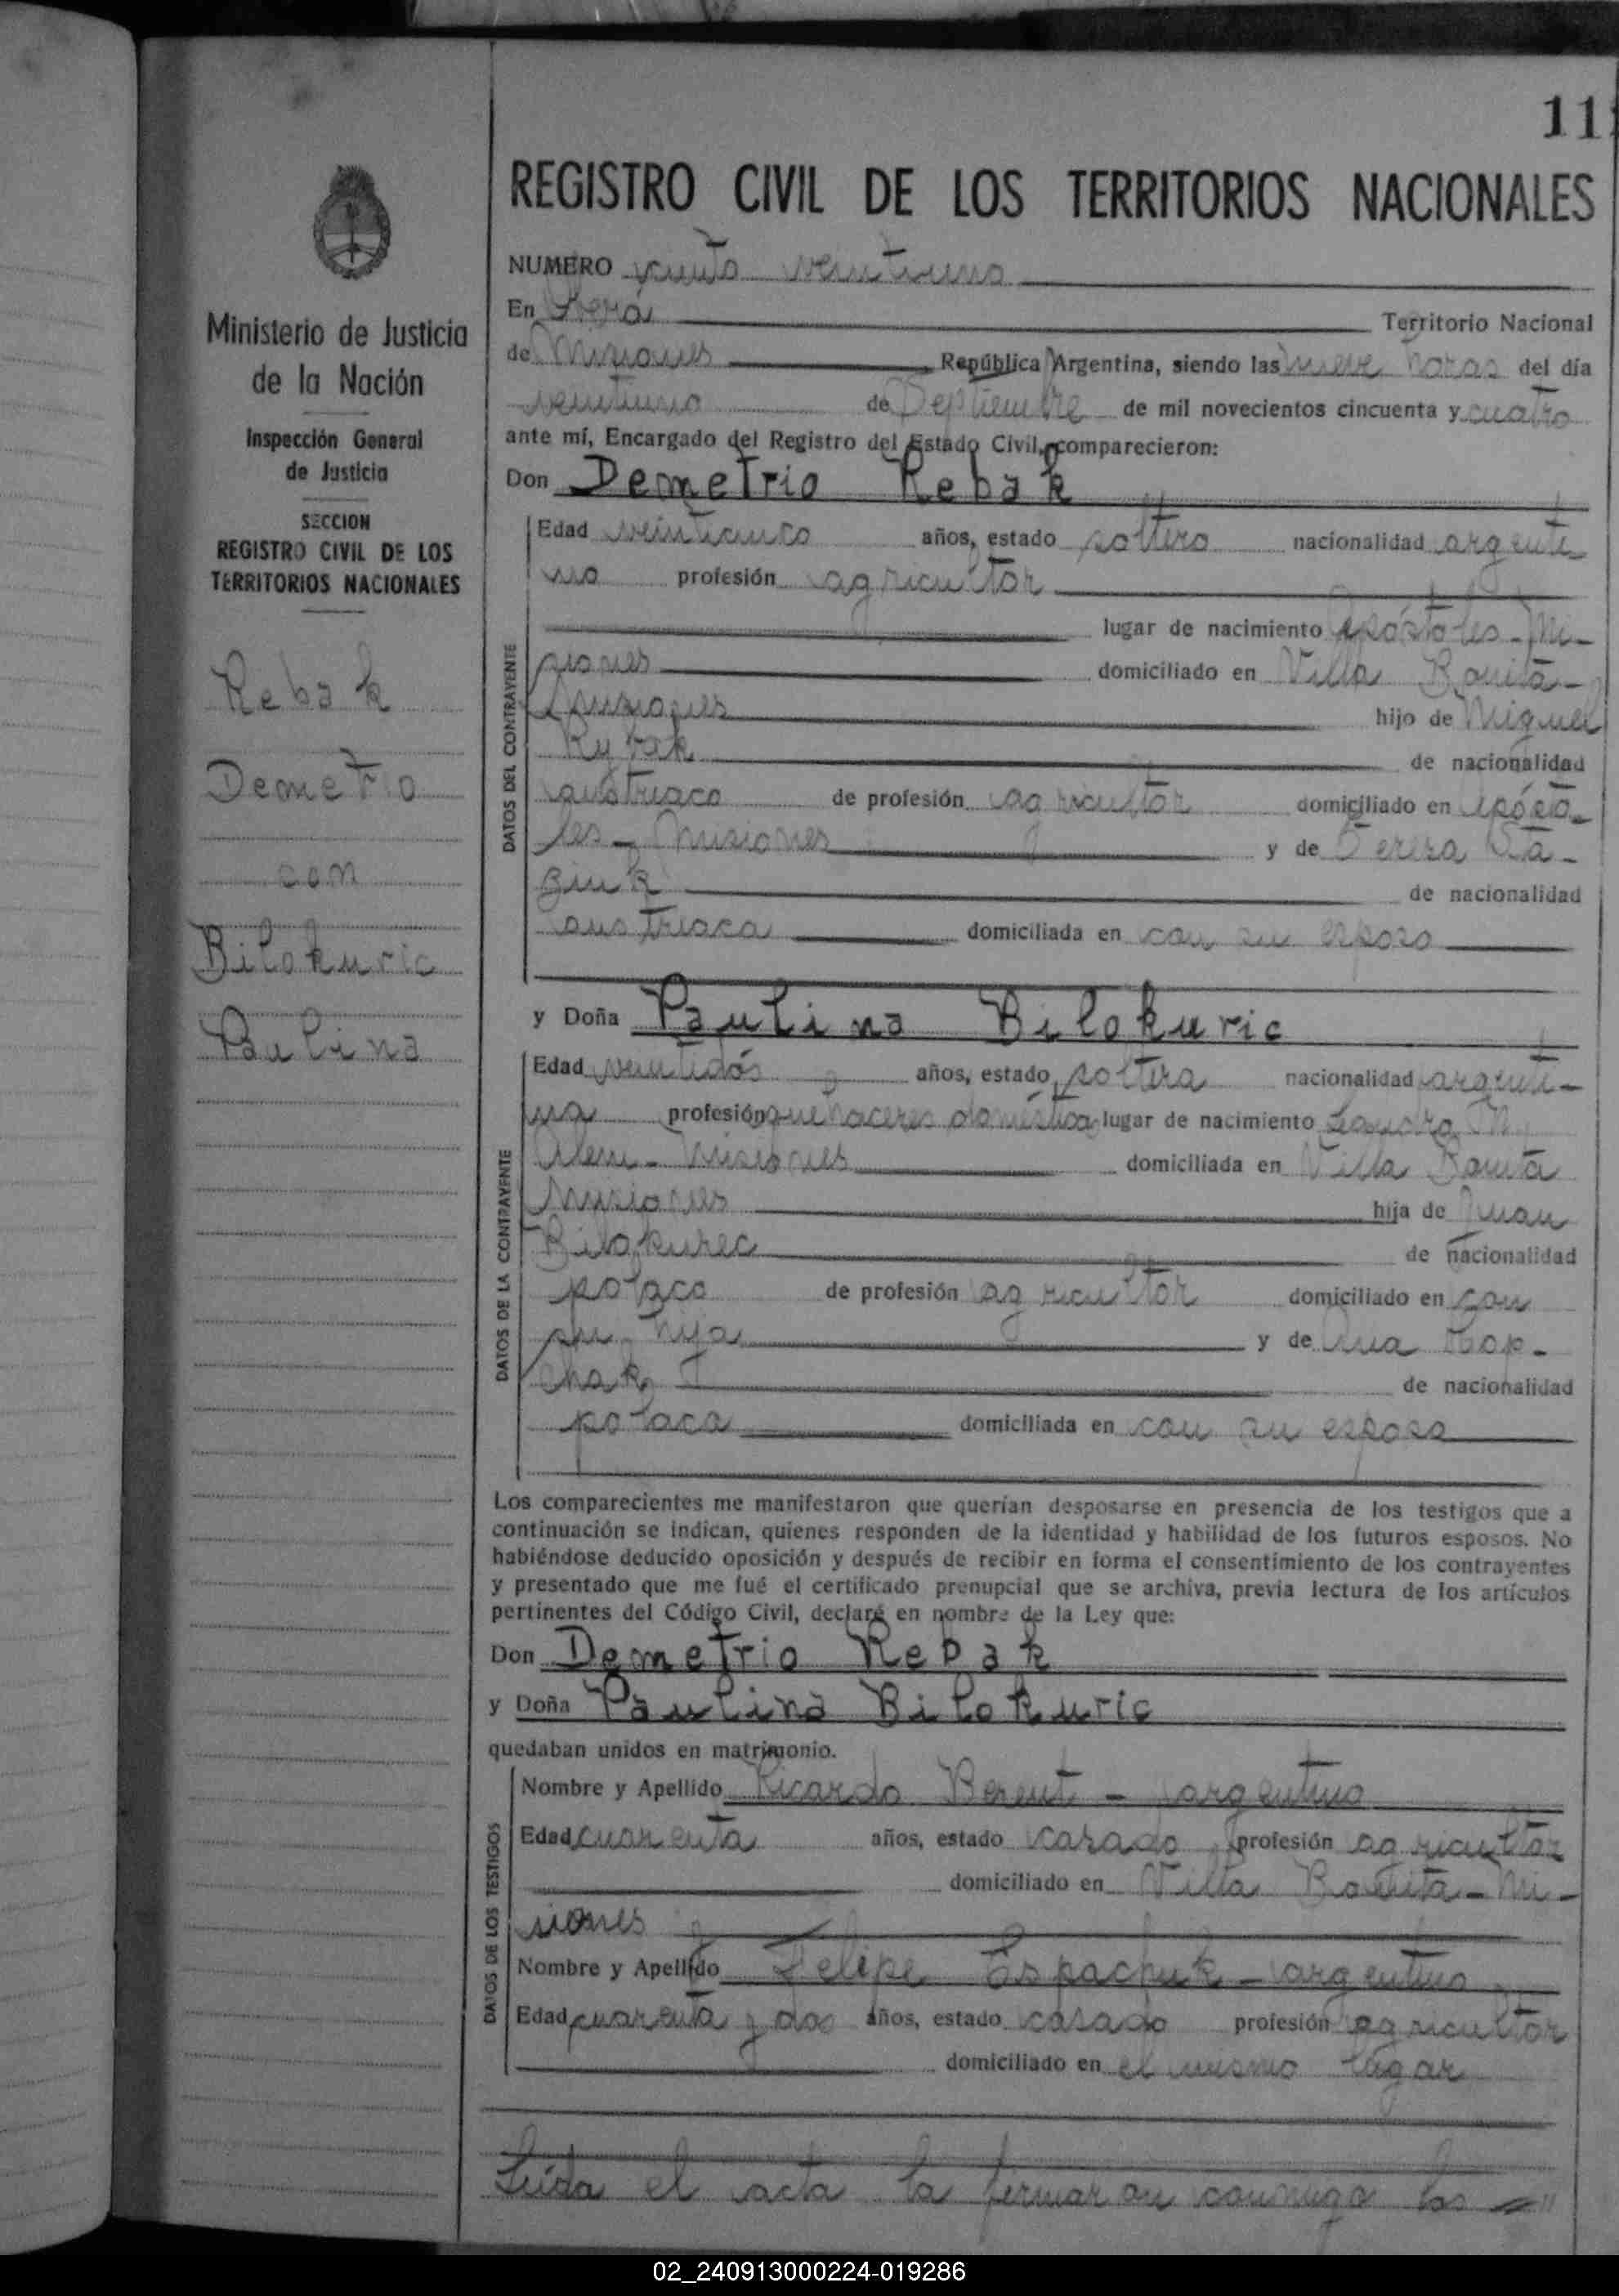 11
REGISTRO CIVIL DE LOS TERRITORIOS NACIONALES
Ministerio de Justicia
de la Nación
Inspección General
de Justicia
SECCION
REGISTRO CIVIL DE LOS
TERRITORIOS NACIONALES
Rebak
Demetrio
con
Bilokuric
Paulina
NUMERO ciento veintiuno
En Oberá Territorio Nacional
de Misiones República Argentina, siendo las nueve horas del día
veintiuno de Septiembre de mil novecientos cincuenta y cuatro
ante mí, Encargado del Registro del Estado Civil, comparecieron:
Don Demetrio Rebak
DATOS DEL CONTRAYENTE
Edad veinticinco años, estado soltero nacionalidad argenti-
no profesión agricultor
lugar de nacimiento Apóstoles - Mi-
siones domiciliado en Villa Bonita -
Misiones hijo de Miguel
Rybak de nacionalidad
austriaco de profesión agricultor domiciliado en Apósto-
les - Misiones y de Teresa
de nacionalidad
austriaca domiciliada en con su esposo
y Doña Paulina Bilokuric
DATOS DE LA CONTRAYENTE
Edad veintidós años, estado soltera nacionalidad argenti-
na profesión quehaceres domésticos lugar de nacimiento Leandro N.
Alem - Misiones domiciliada en Villa Bonita
Misiones hija de Juan
Bilokurec de nacionalidad
polaco de profesión agricultor domiciliado en con
su hija y de Ana
de nacionalidad
polaca domiciliada en con su esposo
Los comparecientes me manifestaron que querían desposarse en presencia de los testigos que a
continuación se indican, quienes responden de la identidad y habilidad de los futuros esposos. No
habiéndose deducido oposición y después de recibir en forma el consentimiento de los contrayentes
y presentado que me fué el certificado prenupcial que se archiva, previa lectura de los artículos
pertinentes del Código Civil, declaré en nombre de la Ley que:
Don Demetrio Rebak
y Doña Paulina Bilokuric
quedaban unidos en matrimonio.
DATOS DE LOS TESTIGOS
Nombre y Apellido Ricardo Berent - argentino
Edad cuarenta años, estado casado profesión agricultor
domiciliado en Villa Bonita - Mi-
siones
Nombre y Apellido Felipe Espachuk - argentino
Edad cuarenta y dos años, estado casado profesión agricultor
domiciliado en el mismo lugar
Leída el acta la firmaron conmigo los
02_240913000224-019286